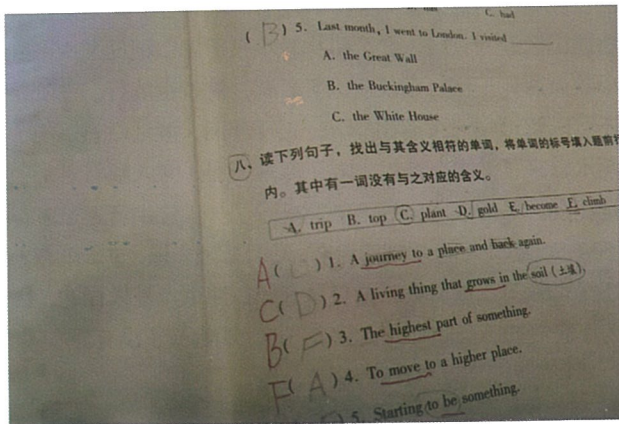 C. had
( B ) 5. Last month, I went to London. I visited ______
A. the Great Wall
B. the Buckingham Palace
C. the White House
八、读下列句子，找出与其含义相符的单词，将单词的标号填入题前
内。其中有一词没有与之对应的含义。
A. trip B. top C. plant D. gold E. become F. climb
A ( ) 1. A journey to a place and back again.
C ( D ) 2. A living thing that grows in the soil (土壤).
B ( F ) 3. The highest part of something.
F ( A ) 4. To move to a higher place.
) 5. Starting to be something.